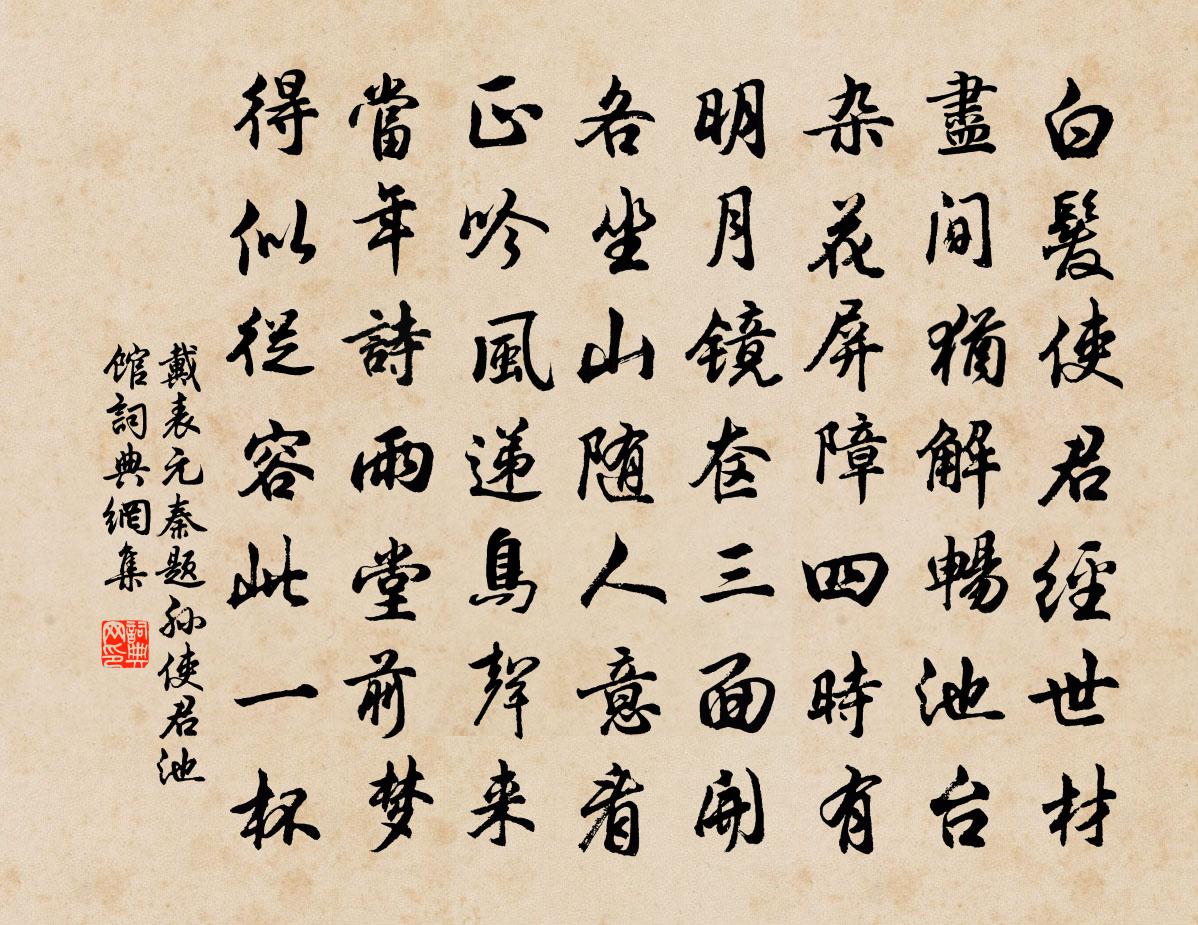 白髮使君經世材
盡間猶解暢池台
杂花屏障四時有
明月镜奁三面開
各坐山随人意看
正吟風递鳥聲来
當年詩雨堂前梦
得似從容此一杯
戴表元秦題孙使君池
館詞典網集
詞典网印